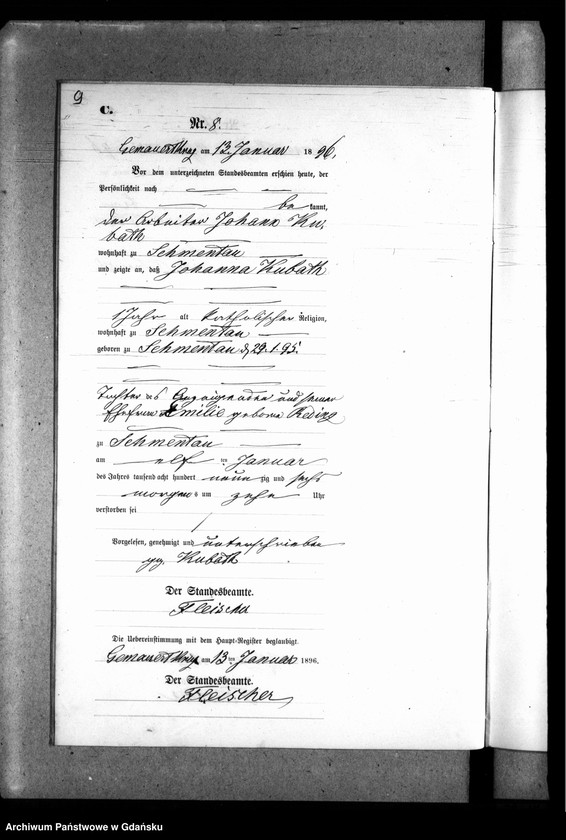 9
C.
Nr. 8.
am 13. Januar 1896.
Vor dem unterzeichneten Standesbeamten erschien heute, der
Persönlichkeit nach
bekannt,
der Arbeiter Johann Ku-
bath
wohnhaft zu Schmentau
und zeigte an, daß Johanna Kubath
1 Jahr alt katholischer Religion,
wohnhaft zu Schmentau
geboren zu Schmentau d. 29.1.95.
Tochter des Anzeigenden und seiner
Ehefrau Emilie geborne
zu Schmentau
am elf ten Januar
des Jahres tausend acht hundert neunzig und sechs
morgens um zehn Uhr
verstorben sei
Vorgelesen, genehmigt und unterschrieben
gez. Kubath
Der Standesbeamte.
Fleischer
Die Uebereinstimmung mit dem Haupt-Register beglaubigt.
am 13ten Januar 1896.
Der Standesbeamte.
Fleischer
Archiwum Państwowe w Gdańsku